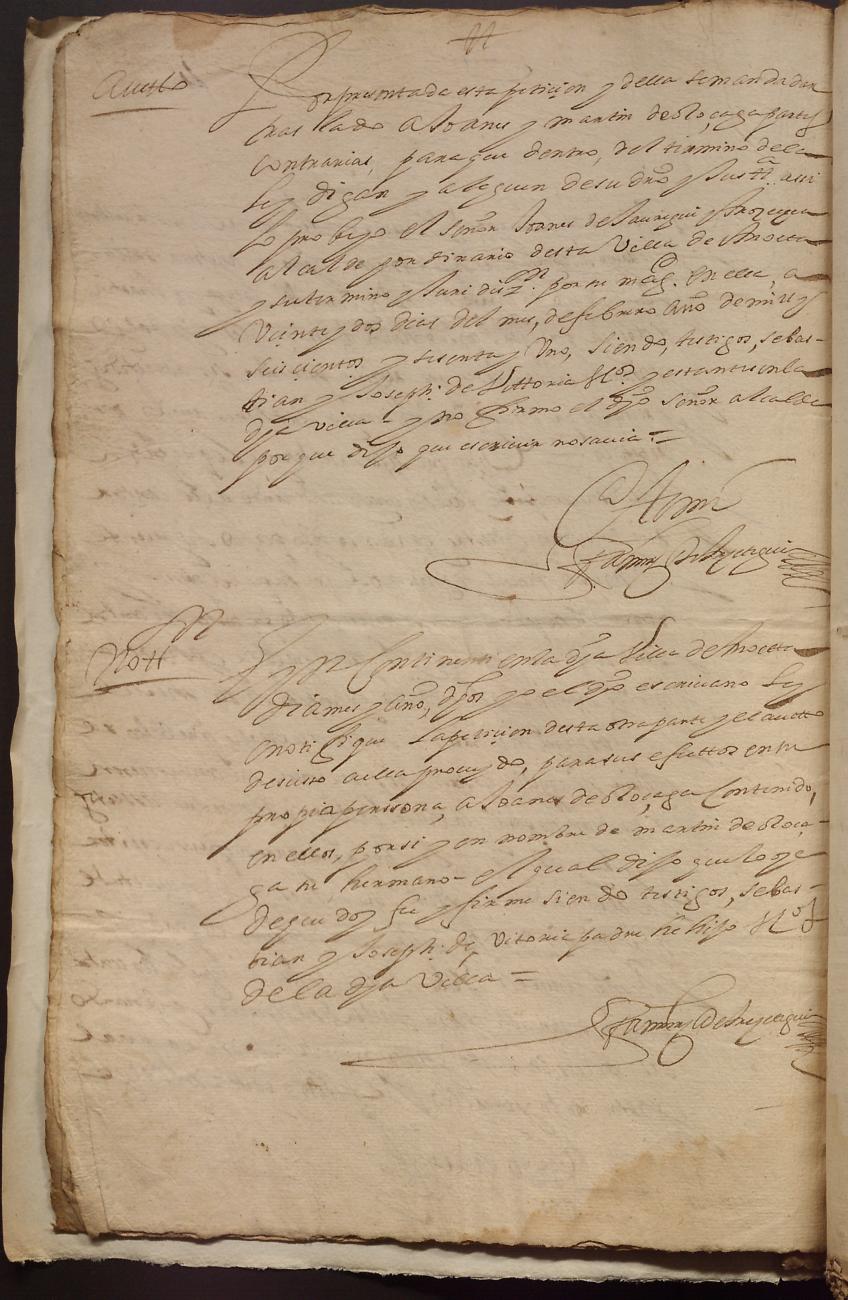 Auctto
Por presentada esta peticion y della se manda dar
tras lado a Joanes y martin de oloçaga partes
Contrarias, para que dentro, del termino de la
ley digan y aleguen de su dro y Justª assi
lo probeyo el señor Joanes de Jauregui
alcalde hordinario desta Villa de
y su termino y Juridizon por su magd. en ella, a
Veinte y dos dias del mes, de febrero año de mill y
seis cientos y sesenta y Uno, siendo, testigos, sebas-
tian y Joseph de Vittoria Vos y estantes en la
dha villa - y no firmo el dho señor alcalde
porque dijo que escriuir no sauia =
Ante mi
Noton
En Continenti en la dha Villa de
dia mes y año, dhos yo el dho escriuano ley
e notifique la peticion desta otra parte y el auctto
desusso a ella proueydo, para sus efecttos en su
propia perssona, a Joanes de oloçaga Contenido,
en ellos, por si y en nombre de martin de oloça-
ga su hermano - el qual dijo que lo oye
de que doy fee y firme siendo testigos, sebas-
tian y Joseph de Vitoria padre he hijo Vos
de la dha Villa =